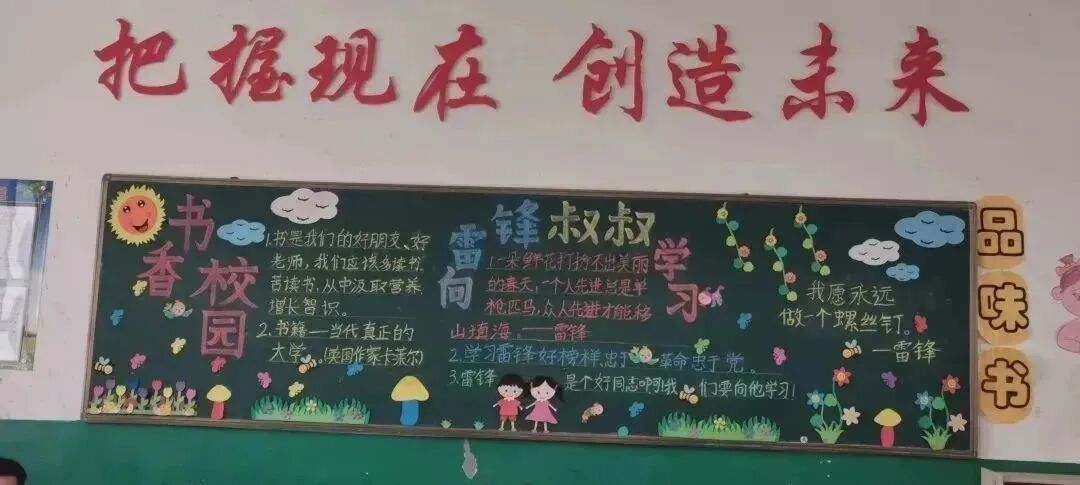 把握现在 创造未来
书香校园
1.书是我们的好朋友、好
老师，我们应该多读书
苦读书，从中汲取营养
增长智识。
2.书籍—当代真正的
大学。(英国作家卡莱尔)
向雷锋叔叔学习
1.一朵鲜花打扮不出美丽
的春天，一个人先进总是单
枪匹马，众人先进才能移
山填海。——雷锋
2.学习雷锋好榜样忠于革命忠于党。
3.雷锋是个好同志啊我们要向他学习！
我愿永远
做一个螺丝钉。
—雷锋
品味书